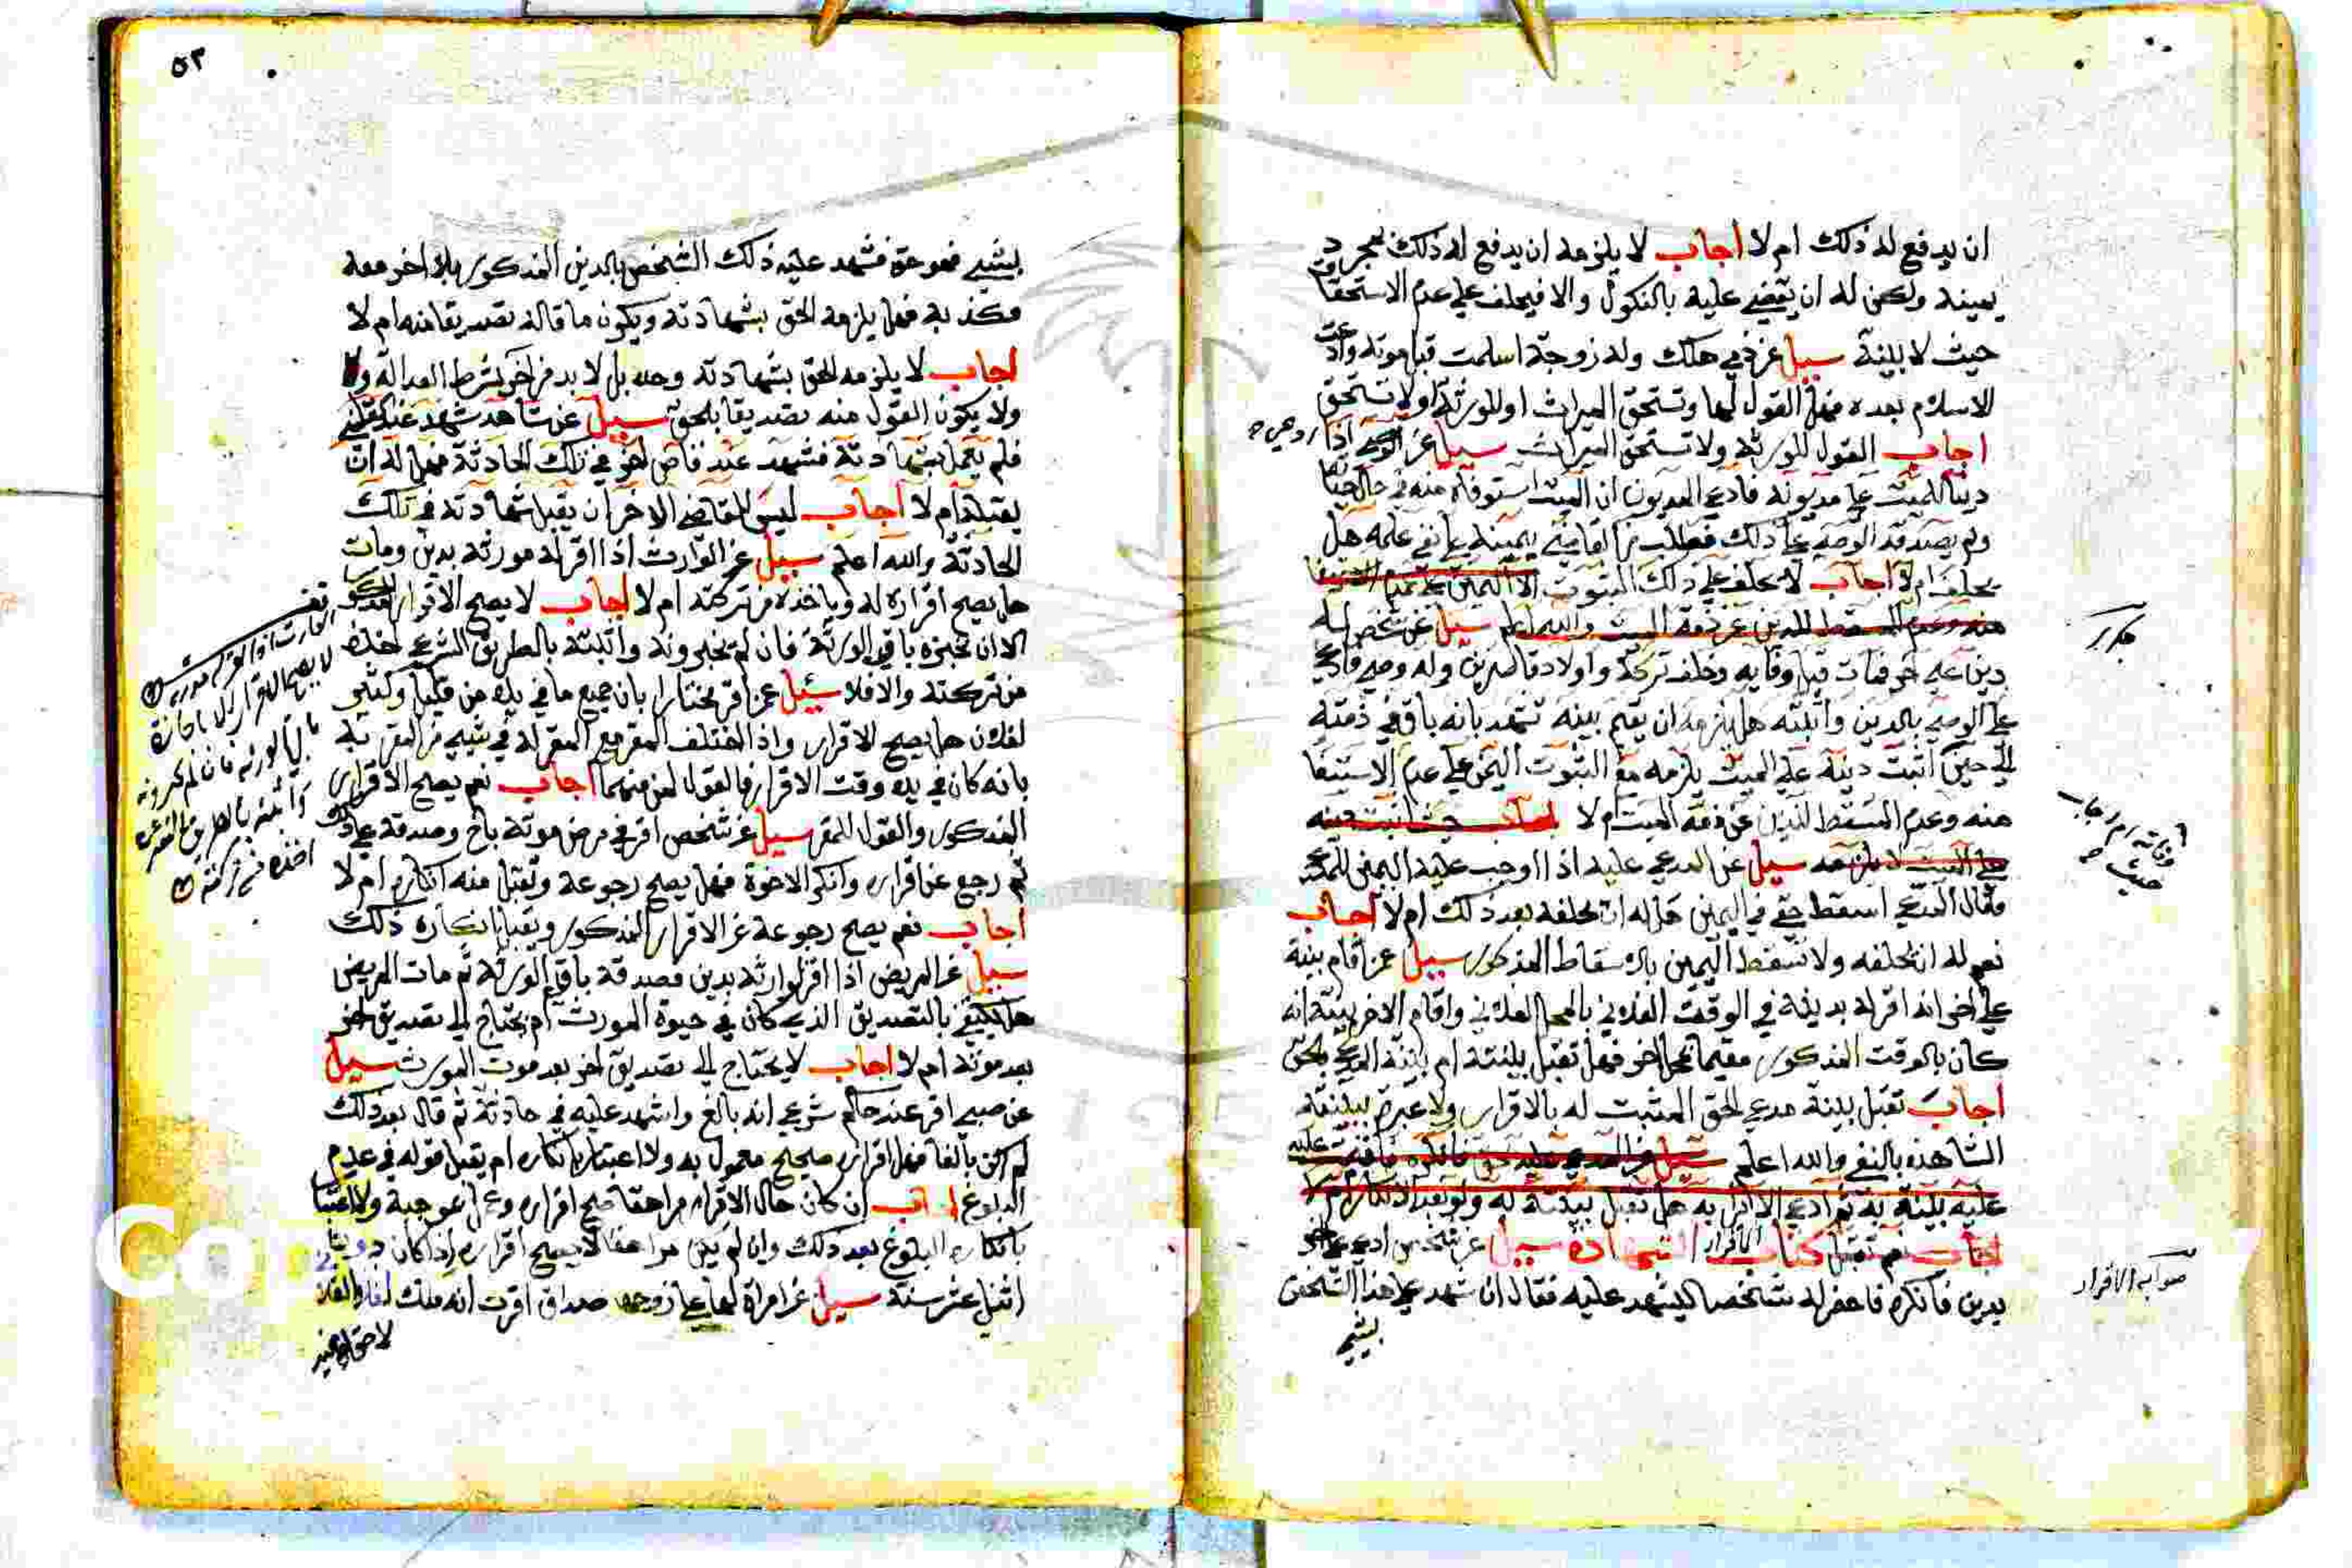 ان يدفع له ذلك ام لا اجاب لا يلزمه ان يدفع له ذلك بمجرد
يمينه ولكن له ان يقضي عليه بالنكول والا فيحلف على عدم الاستحقاق
حيث لا بينة سيل عن ذمي هلك وله زوجة اسلمت قبل موته وادعت
الاسلام بعده فهل القول لها وتستحق الميراث او للورثة ولا تستحق
اجاب القول للورثة ولا تستحق الميراث سيل عن اذا
دينا للميت على مديونه فادعى المديون ان الميت استوفاه منه في حال حياته
ولم يصدقه الوصي على ذلك فطلب من القاضي يمينه على نفي علمه هل
يحلف ام لا اجاب لا يحلف على ذلك الثبوت الا اليمين على عدم الاستيفا
منه وعدم المسقط للدين عن ذمة الميت والله اعلم سيل عن شخص له
دين على اخر فمات قبل وفايه وخلف تركة واولادا قاصرين وله وصي فادعى
على الوصي بالدين واثبته هل يلزمه ان يقيم بينه تشهد بانه باق في ذمته
الى حين اثبت دينه على الميت يلزمه مع الثبوت اليمين على عدم الاستيفا
منه وعدم المسقط للدين عن ذمة الميت ام لا اجاب حيث اثبت دينه
على الميت لا يلزمه سيل عن المدعى عليه اذا اوجب عليه اليمين للمدعي
فقال المدعي اسقط حقي في اليمين هل له ان يحلفه بعد ذلك ام لا اجاب
نعم له ان يحلفه ولا تسقط اليمين بالاسقاط المذكور سيل عمن اقام بينة
على اخر انه اقر له بدينه في الوقت الفلاني بالمحل الفلاني واقام الاخر بينة انه
كان بالوقت المذكور مقيما بمحل اخر فهل تقبل بينته ام بينة المدعي بالحق
اجاب تقبل بينة مدعي الحق المثبت له بالاقرار ولا عبرة ببينته
الشاهدة بالنفي والله اعلم سيل عن المدعى عليه حق فانكره فاقيمت عليه
عليه بينة به ثم ادعى الابرا به هل تقبل بينته به ولو بعد الانكار ام لا
اجاب نعم تقبل كتاب الاقرار الشهادة سيل عن شخص ادعى على اخر
بدين فانكره فاحضر له شخصا ليشهد عليه فقال ان شهد علي هذا الشخص
بشيء
مكرر
صوابه الاقرار
٥٣
بشيء فهو حق فشهد عليه ذلك الشخص بالدين المذكور بلا اخر معه
فكذبه فهل يلزمه الحق بشهادته ويكون ما قاله تصديقا منه ام لا
اجاب لا يلزمه الحق بشهادته وحده بل لا بد من اخر بشرط العدالة
ولا يكون القول منه تصديقا بالحق سيل عن شاهد شهد عند قاضي
فلم يعمل بشهادته فشهد عند قاض اخر في تلك الحادثة فهل له ان
يقبله ام لا اجاب ليس للقاضي الاخر ان يقبل شهادته في تلك
الحادثة والله اعلم سيل عن الوارث اذا اقر له مورثه بدين ومات
هل يصح اقراره له وياخذه من تركته ام لا اجاب لا يصح الاقرار المذكور
الا ان يجيزه باقي الورثة فان لم يجيزونه واثبته بالطريق الشرعي اخذه
من تركته والا فلا سئيل عمن اقر مختارا بان جميع ما في يده من قليل وكثير
لفلان هل يصح الاقرار واذا اختلف المقر مع المقر له في شيء من المقر به
بانه كان في يده وقت الاقرار فالقول لمن منهما اجاب نعم يصح الاقرار
المذكور والقول للمقر سيل عن شخص اقر في مرض موته باخ وصدقه على ذلك
ثم رجع عن اقراره وانكر الاخوة فهل يصح رجوعه وتقبل منه انكاره ام لا
اجاب نعم يصح رجوعه عن الاقرار المذكور ويقبل انكاره ذلك
سيل عن المريض اذا اقر لوارثه بدين فصدقه باقي الورثة ثم مات المريض
هل يكتفي بالتصديق الذي كان في حيوة المورث ام يحتاج الى تصديق اخر
بعد موته ام لا اجاب لا يحتاج الى تصديق اخر بعد موت المورث سيل
عن صبي اقر عند حاكم شرعي انه بالغ واشهد عليه في حادثة ثم قال بعد ذلك
لم اكن بالغا فهل اقراره صحيح معمول به ولا اعتبار بانكاره ام يقبل قوله في عدم
البلوغ اجاب ان كان حال الاقرار مراهقا صح اقراره وعمل بموجبه ولا اعتبار
بانكاره البلوغ بعد ذلك وان لم يكن مراهقا لا يصح اقراره اذا كان دون
اثني عشر سنة سيل عن امراة لها على زوجها صداق اقرت انه ملك لفلان
لا يصح الاقرار الا باجازة
باقي الورثه فان لم يجيزونه
واثبته بالطريق الشرعي
اخذه من تركته